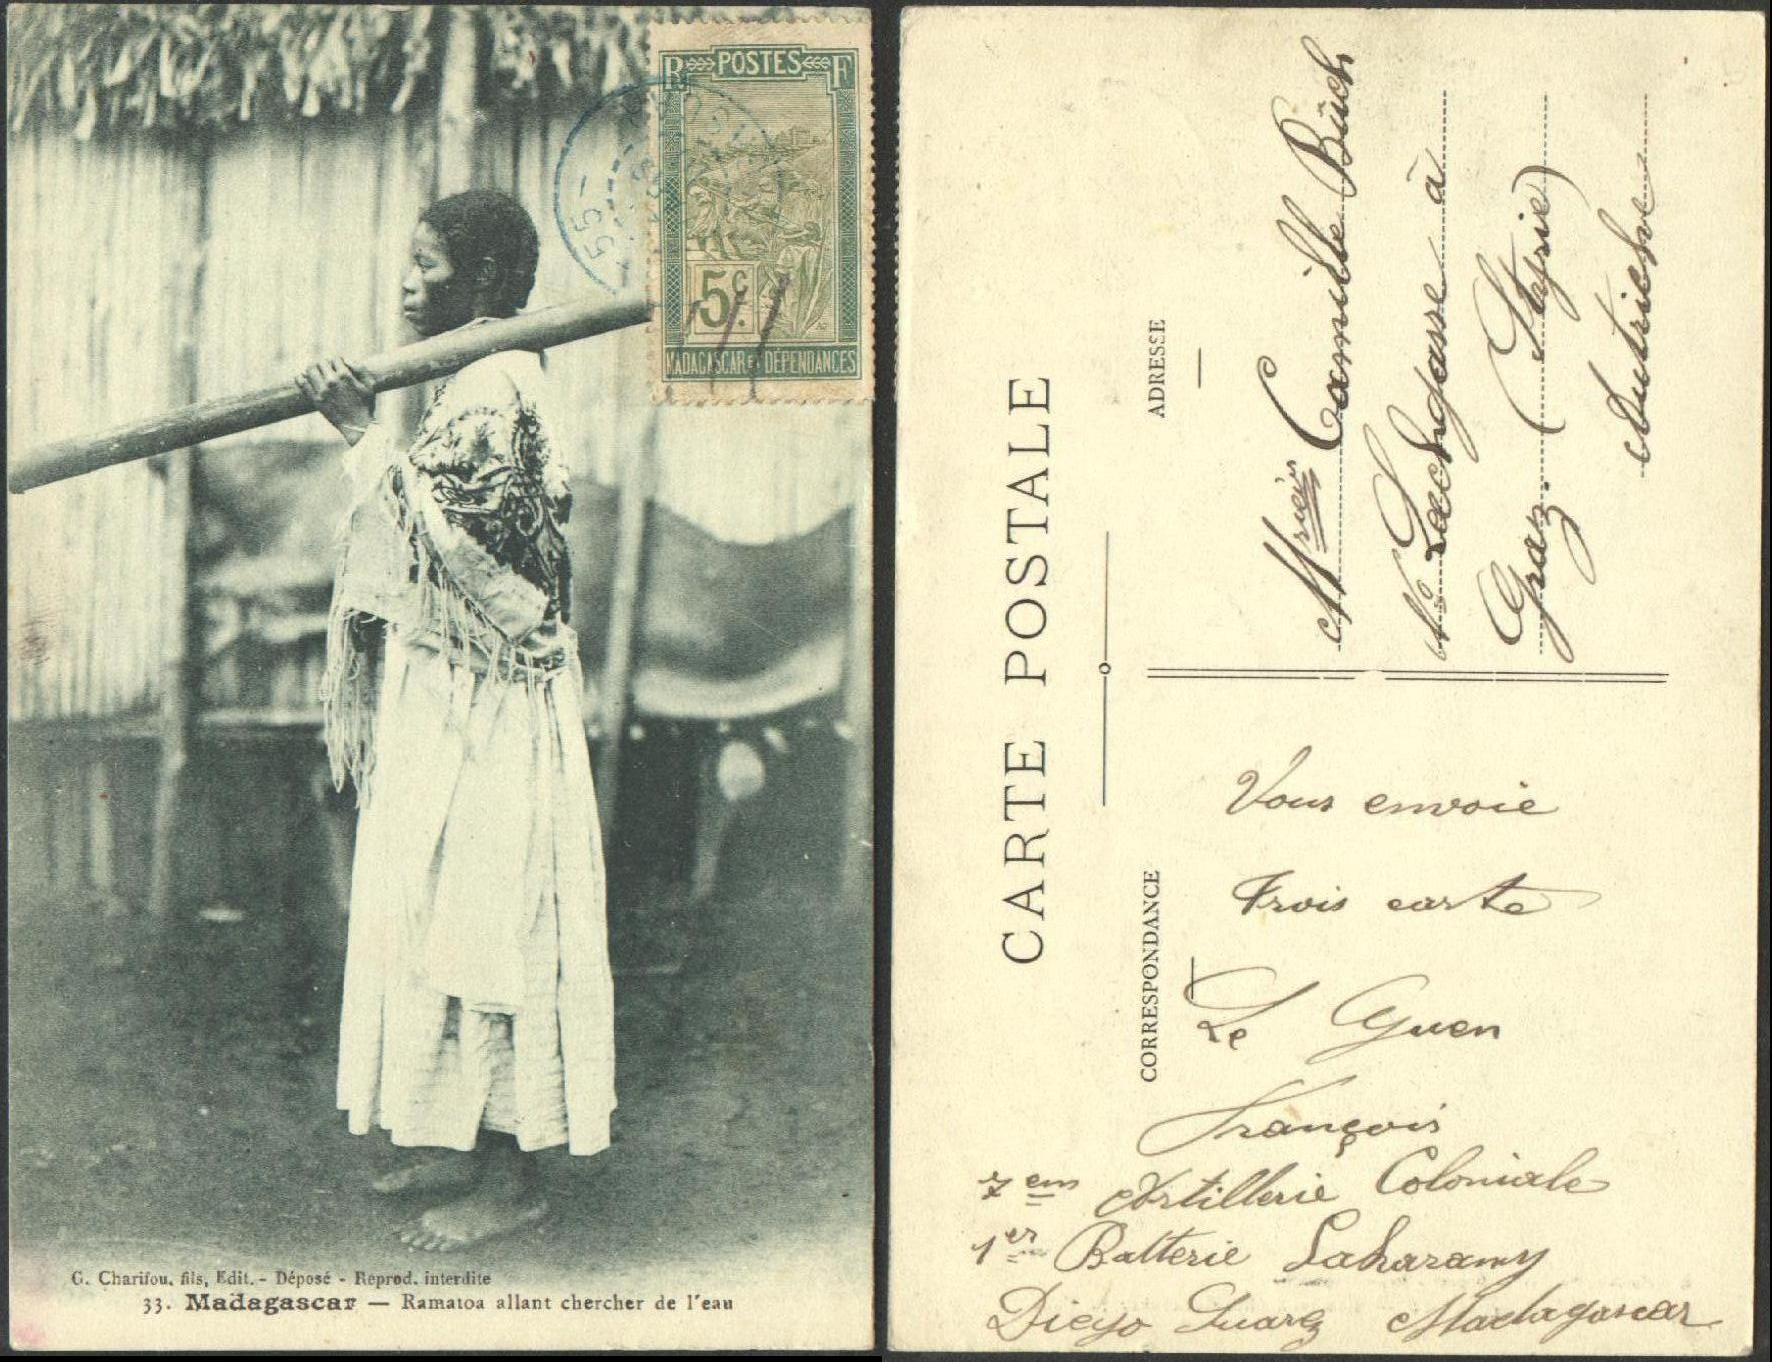 R POSTES F
5c
MADAGASCAR ET DÉPENDANCES
55
G. Charifou, fils, Edit. - Déposé - Reprod. interdite
33. Madagascar — Ramatoa allant chercher de l'eau
CARTE POSTALE
ADRESSE
Camille Büch
à
Graz. (Styrie)
Autriche
CORRESPONDANCE
Vous envoie
trois carte
Le Guen
François
7em Artillerie Coloniale
1er Batterie Sakaramy
Diego Suarez Madagascar